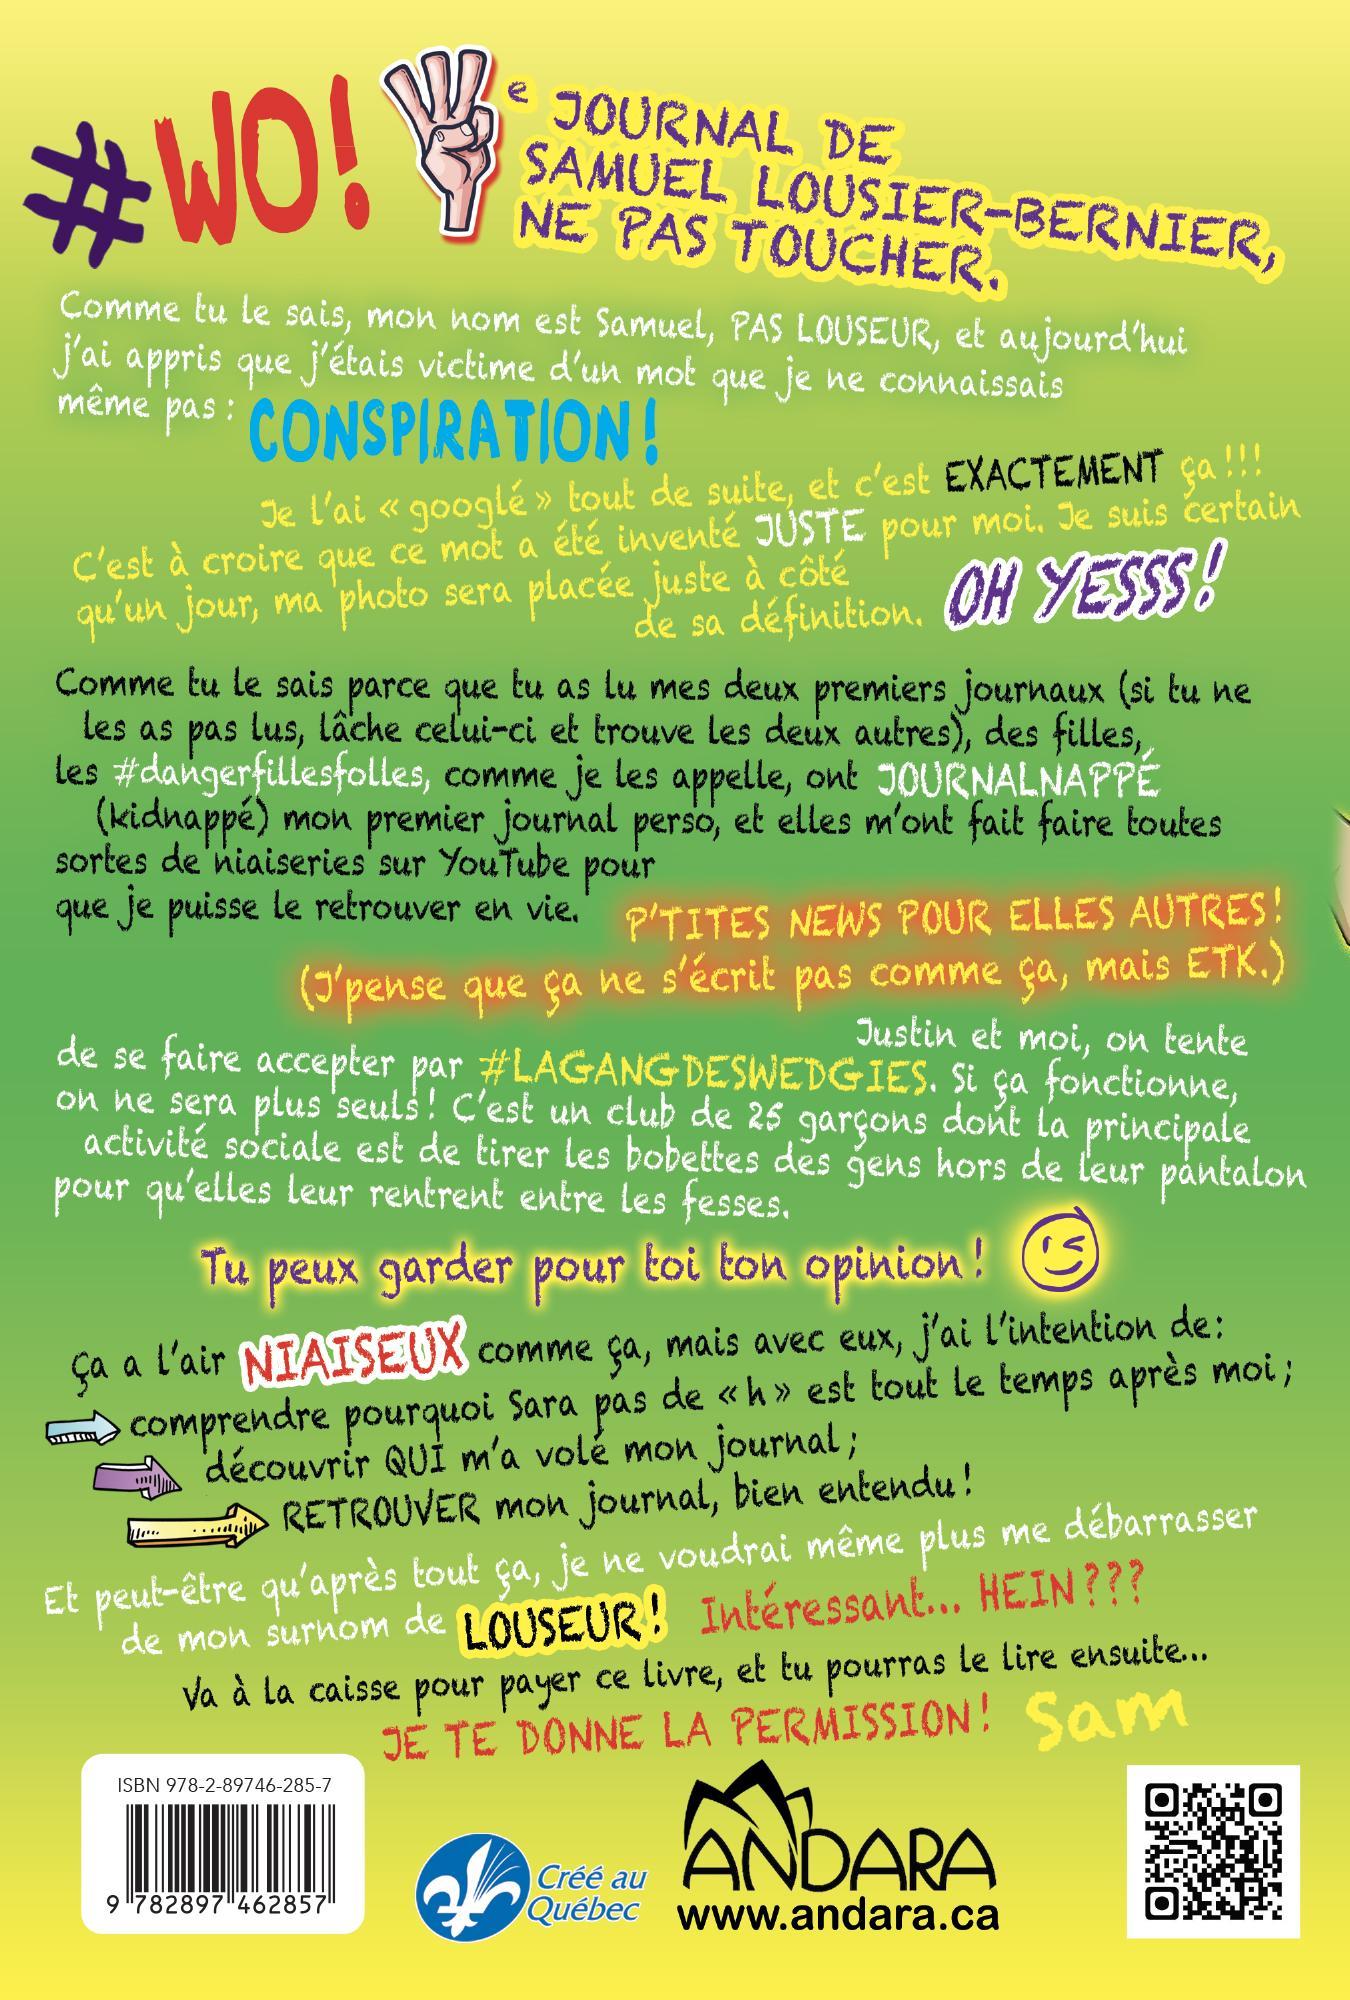 #WO! e JOURNAL DE
SAMUEL LOUSIER-BERNIER,
NE PAS TOUCHER.
Comme tu le sais, mon nom est Samuel, PAS LOUSEUR, et aujourd'hui
j'ai appris que j'étais victime d'un mot que je ne connaissais
même pas : CONSPIRATION !
Je l'ai « googlé » tout de suite, et c'est EXACTEMENT ça !!!
C'est à croire que ce mot a été inventé JUSTE pour moi. Je suis certain
qu'un jour, ma photo sera placée juste à côté
de sa définition. OH YESSS !
Comme tu le sais parce que tu as lu mes deux premiers journaux (si tu ne
les as pas lus, lâche celui-ci et trouve les deux autres), des filles,
les #dangerfillesfolles, comme je les appelle, ont JOURNALNAPPÉ
(kidnappé) mon premier journal perso, et elles m'ont fait faire toutes
sortes de niaiseries sur YouTube pour
que je puisse le retrouver en vie.
P'TITES NEWS POUR ELLES AUTRES !
(J'pense que ça ne s'écrit pas comme ça, mais ETK.)
Justin et moi, on tente
de se faire accepter par #LAGANGDESWEDGIES. Si ça fonctionne,
on ne sera plus seuls ! C'est un club de 25 garçons dont la principale
activité sociale est de tirer les bobettes des gens hors de leur pantalon
pour qu'elles leur rentrent entre les fesses.
Tu peux garder pour toi ton opinion !
Ça a l'air NIAISEUX comme ça, mais avec eux, j'ai l'intention de :
comprendre pourquoi Sara pas de « h » est tout le temps après moi ;
découvrir QUI m'a volé mon journal ;
RETROUVER mon journal, bien entendu !
Et peut-être qu'après tout ça, je ne voudrai même plus me débarrasser
de mon surnom de LOUSEUR ! Intéressant... HEIN ???
Va à la caisse pour payer ce livre, et tu pourras le lire ensuite...
JE TE DONNE LA PERMISSION ! Sam
ISBN 978-2-89746-285-7
9 782897 462857
Créé au
Québec
ANDARA
www.andara.ca